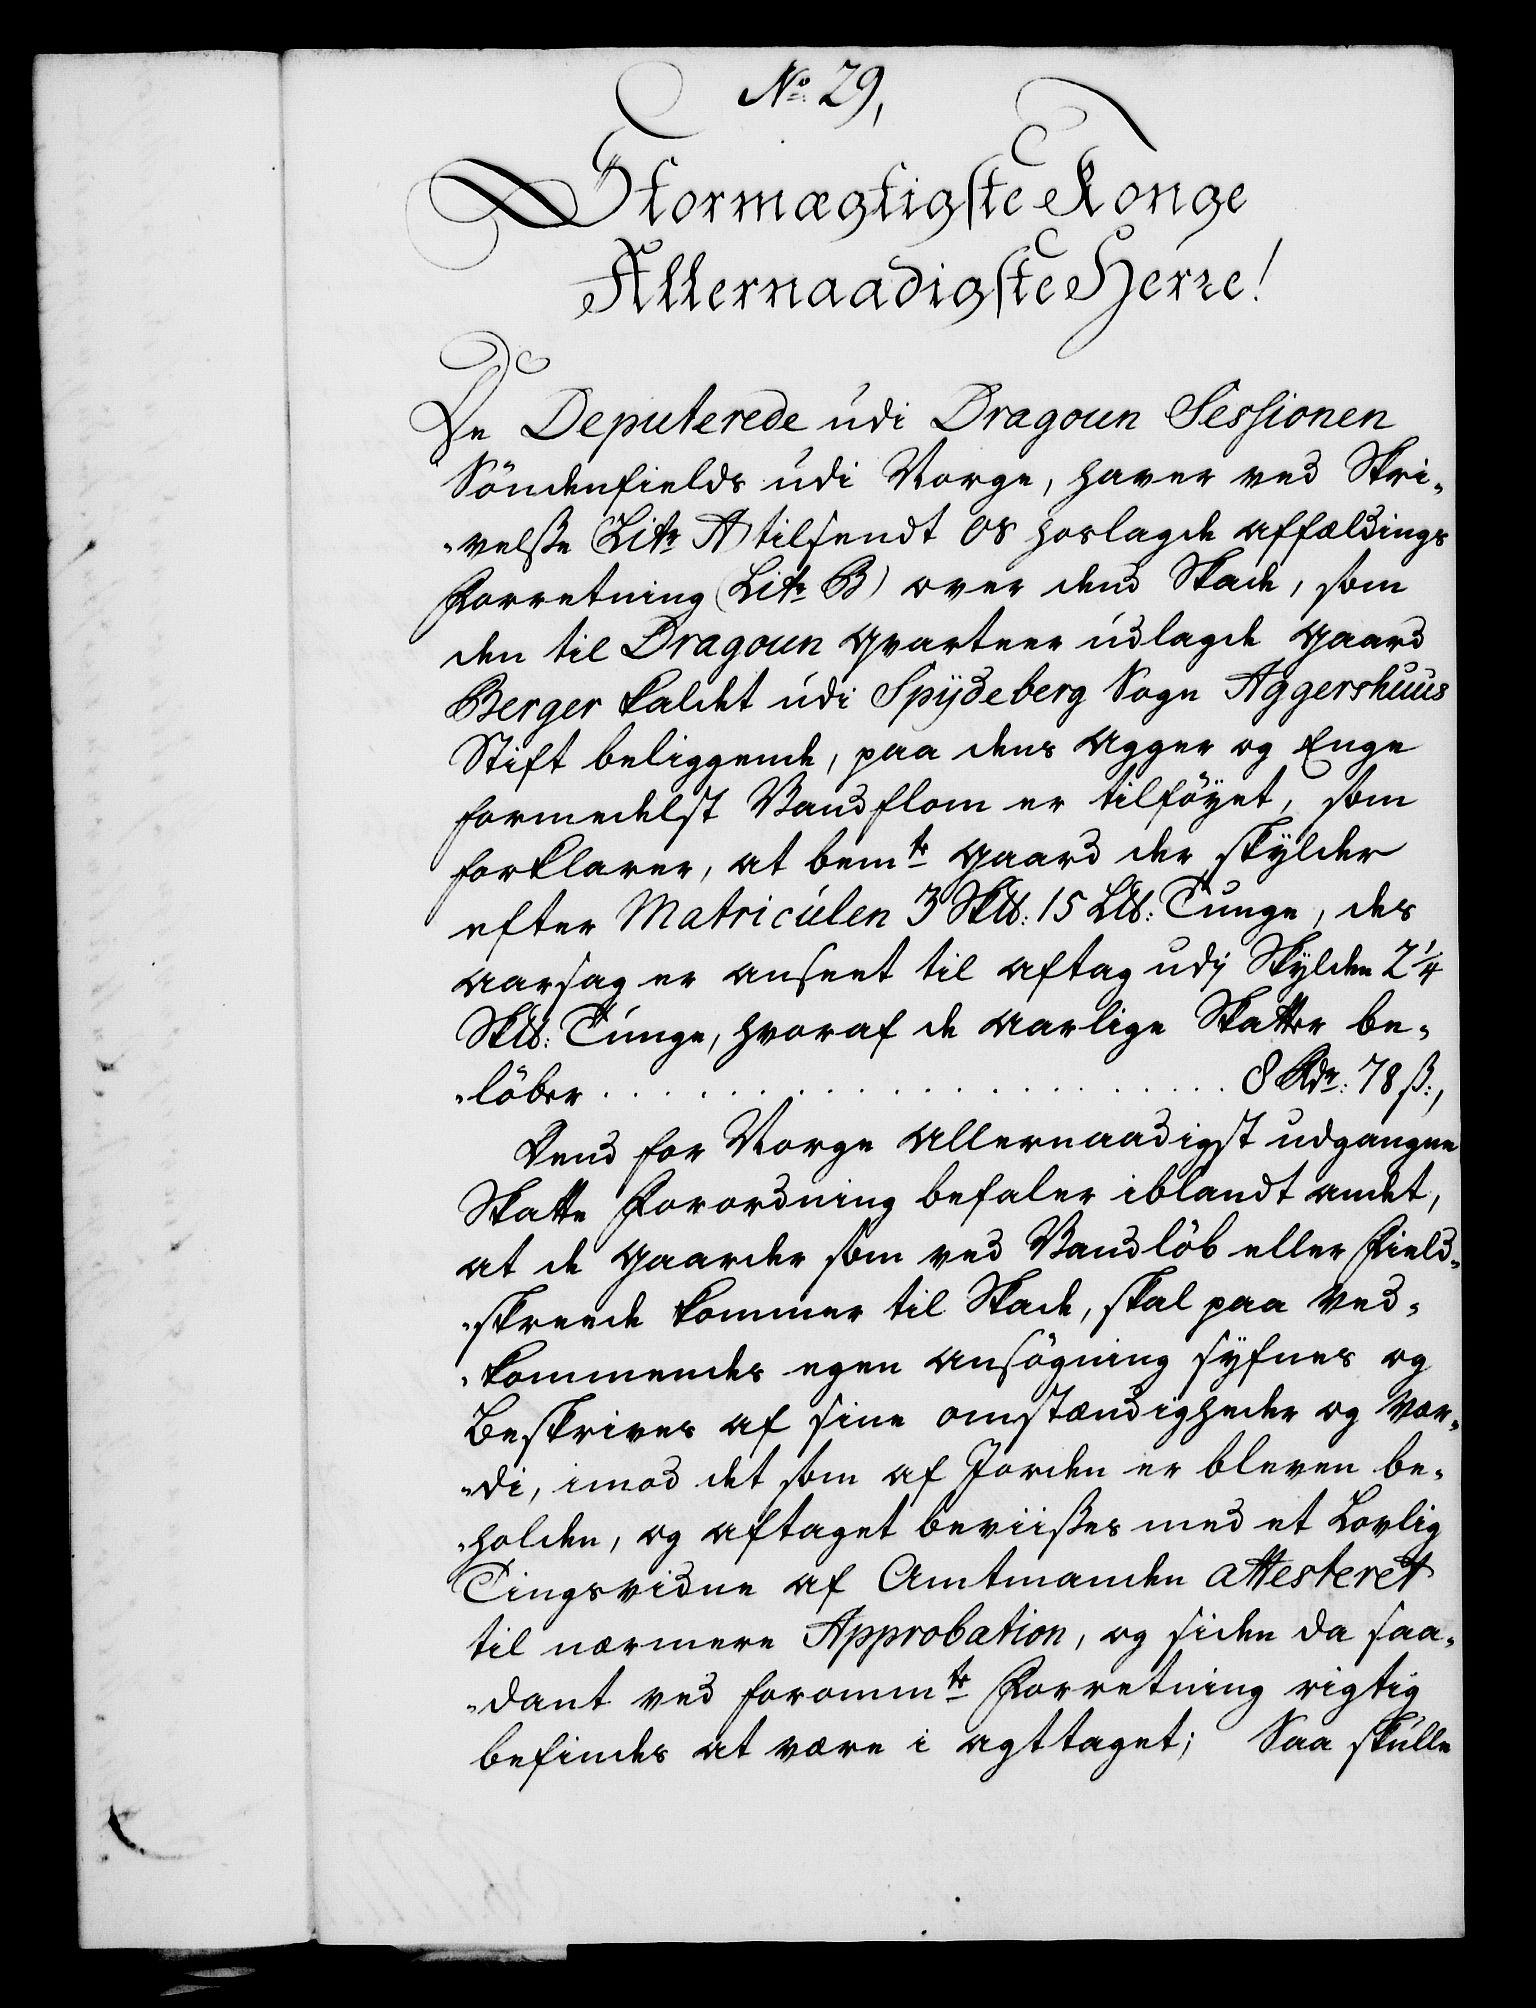 No. 29,
Stormægtigste Konge
Allernaadigste Herre!
De Deputerede udi Dragoun Sessionen
Söndenfields udi Norge, haver ved Skri-
-velsse (Litr A) tilsendt os hoslagde affældings
Forretning (Litr B) over dend Skade, som
den til Dragoun Qvarteer udlagde Gaard
Berger kaldet udi Spydeberg Sogn Aggershuus
Stift beliggende, paa dens Agger og Enge
formedelst Vandflom er tilföyet, som
forklarer, at bemte Gaard der skylder
efter Matriculen 3 Sk℔: 15 L℔: Tunge, des
aarsag er anseet til aftag udi Skylden 2 1/4
Sk℔: Tunge, hvoraf de aarlige Skatter be-
-löber . . . . . . . . . . . . . . . . . . . . 8 Rdr: 78 ß:,
Dend for Norge allernaadigst udgangne
Skatte Forordning befaler iblandt andet,
at de Gaarder som ved Vandlöb eller Field-
-skreede kommer til Skade, skal paa ved-
-kommendes egen ansögning syfnes og
beskrives af sine omstændigheder og vær-
-di, imod det som af Jorden er bleven be-
-holden, og aftaget beviisses med et Lovlig
Tingsvidne af Amtmanden attesteret
til nærmere Approbation, og siden da saa-
-dant ved forommte Forretning rigtig
befindes at være i agttaget; Saa skulle